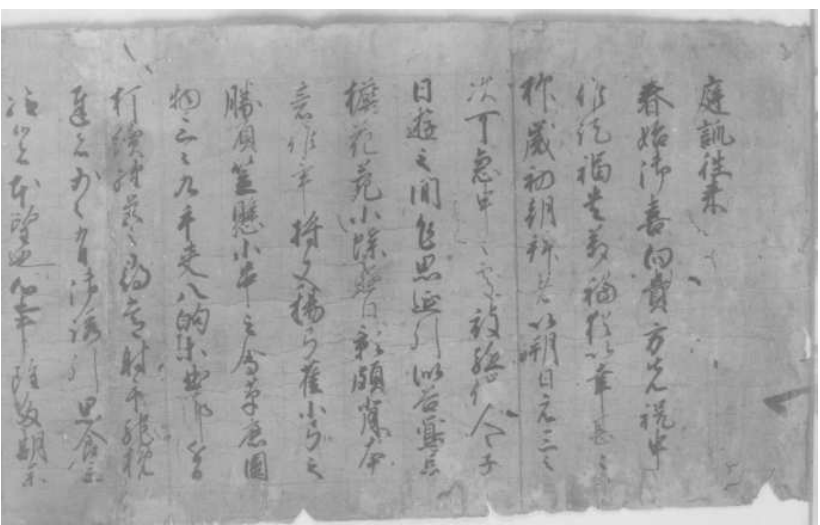 庭訓往来
春始御喜向貴方先祝申
候訖福貴万福猶以幸甚々々
抑歳初朝拝者以朔日元三之
次可急申之処被駈催人々子
日遊之間乍思延引似谷鴬忘
檐花苑小蝶遊日影頗背本
意候畢将又楊弓雀小弓之
勝負笠懸小串之会草鹿圓
物三々九手夾八的等曲節
打續射手馳挽
達者少々有御誘引思食立
給者本望也心事雖多期